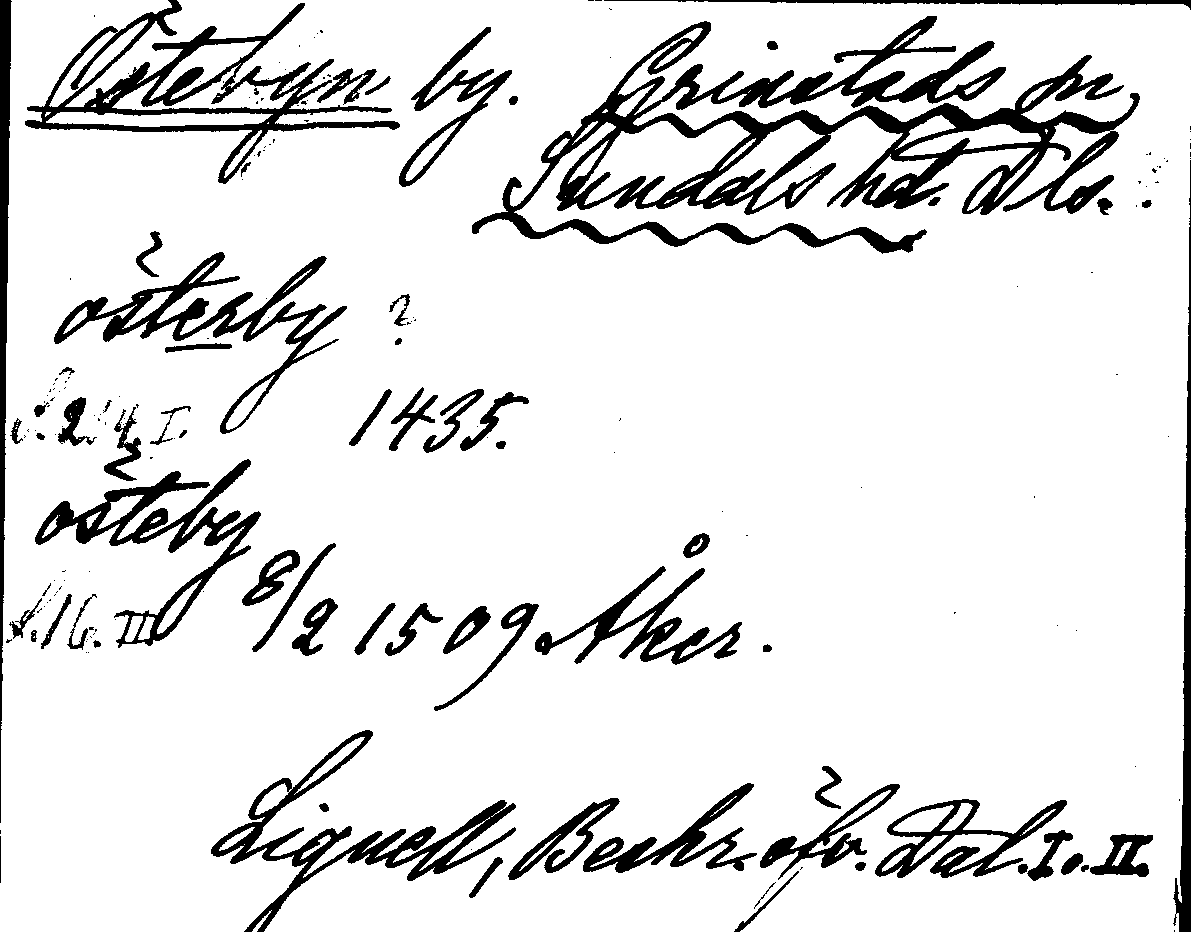 Östebyn by. Grinstads sn,
Sundals hd. Dls.
österby ?
S. 214. I. 1435.
östeby
S. 16. III 8/2 1509. Åker.
Lignell, Beskr. öfv. Dal. I o. II.